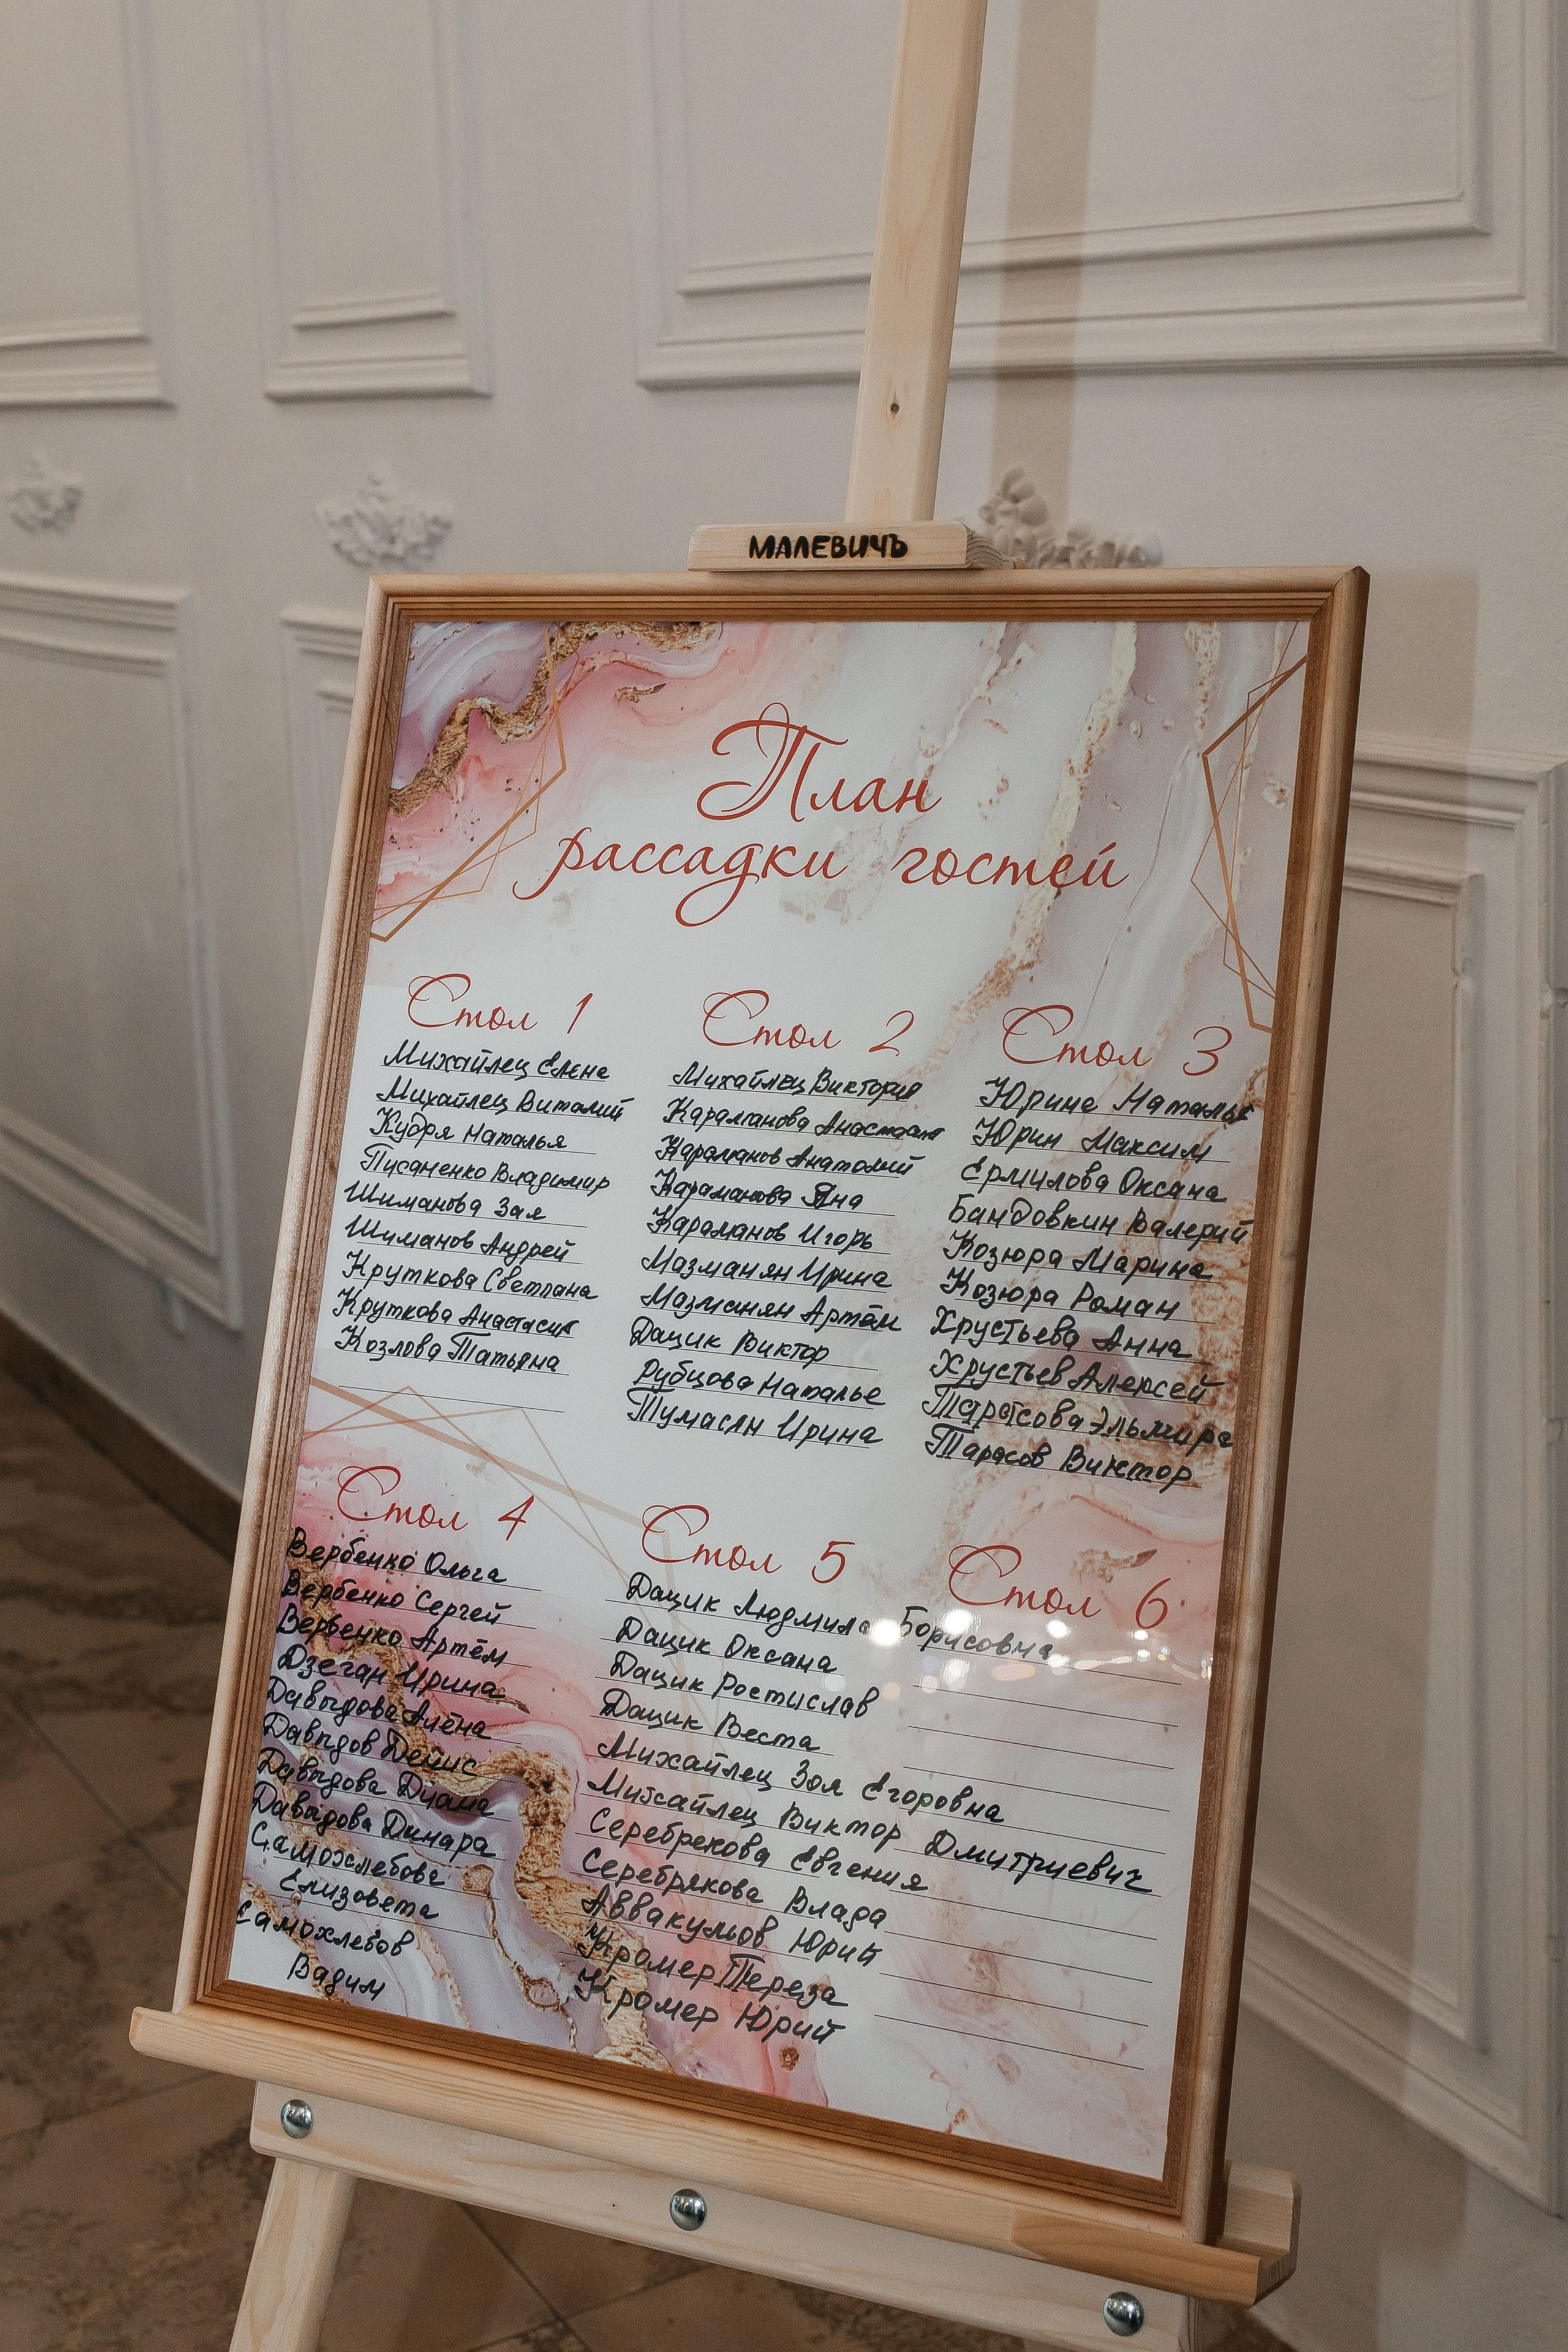 МАЛЕВИЧЪ
План
рассадки гостей
Стол 1
Михайлец Елена
Михайлец Виталий
Кудря Наталья
Писаненко Владимир
Шиманова Зая
Шиманов Андрей
Круткова Светлана
Круткова Анастасия
Козлова Татьяна
Стол 2
Михайлец Виктория
Караманова Анастасия
Караманов Анатолий
Караманова Яна
Караманов Игорь
Мазманян Ирина
Мазманян Артём
Дацик Виктор
Рубцова Наталье
Тумасян Ирина
Стол 3
Юрина Наталья
Юрин Максим
Ермилова Оксана
Бандовкин Валерий
Козюра Марина
Козюра Роман
Хрустьева Анна
Хрустьев Алексей
Тарасова Эльмира
Тарасов Виктор
Стол 4
Вербенко Ольга
Вербенко Сергей
Вербенко Артём
Дзеган Ирина
Давыдова Алёна
Давыдов Денис
Давыдова Диана
Давыдова Динара
Самохлебова
Елизовета
Самохлебов
Вадим
Стол 5
Дацик Людмила Борисовна
Дацик Оксана
Дацик Ростислав
Дацик Веста
Михайлец Зоя Егоровна
Михайлец Виктор Дмитриевич
Серебрекова Евгения
Серебрякова Влада
Аввакумов Юрий
Кромер Тереза
Кромер Юрий
Стол 6